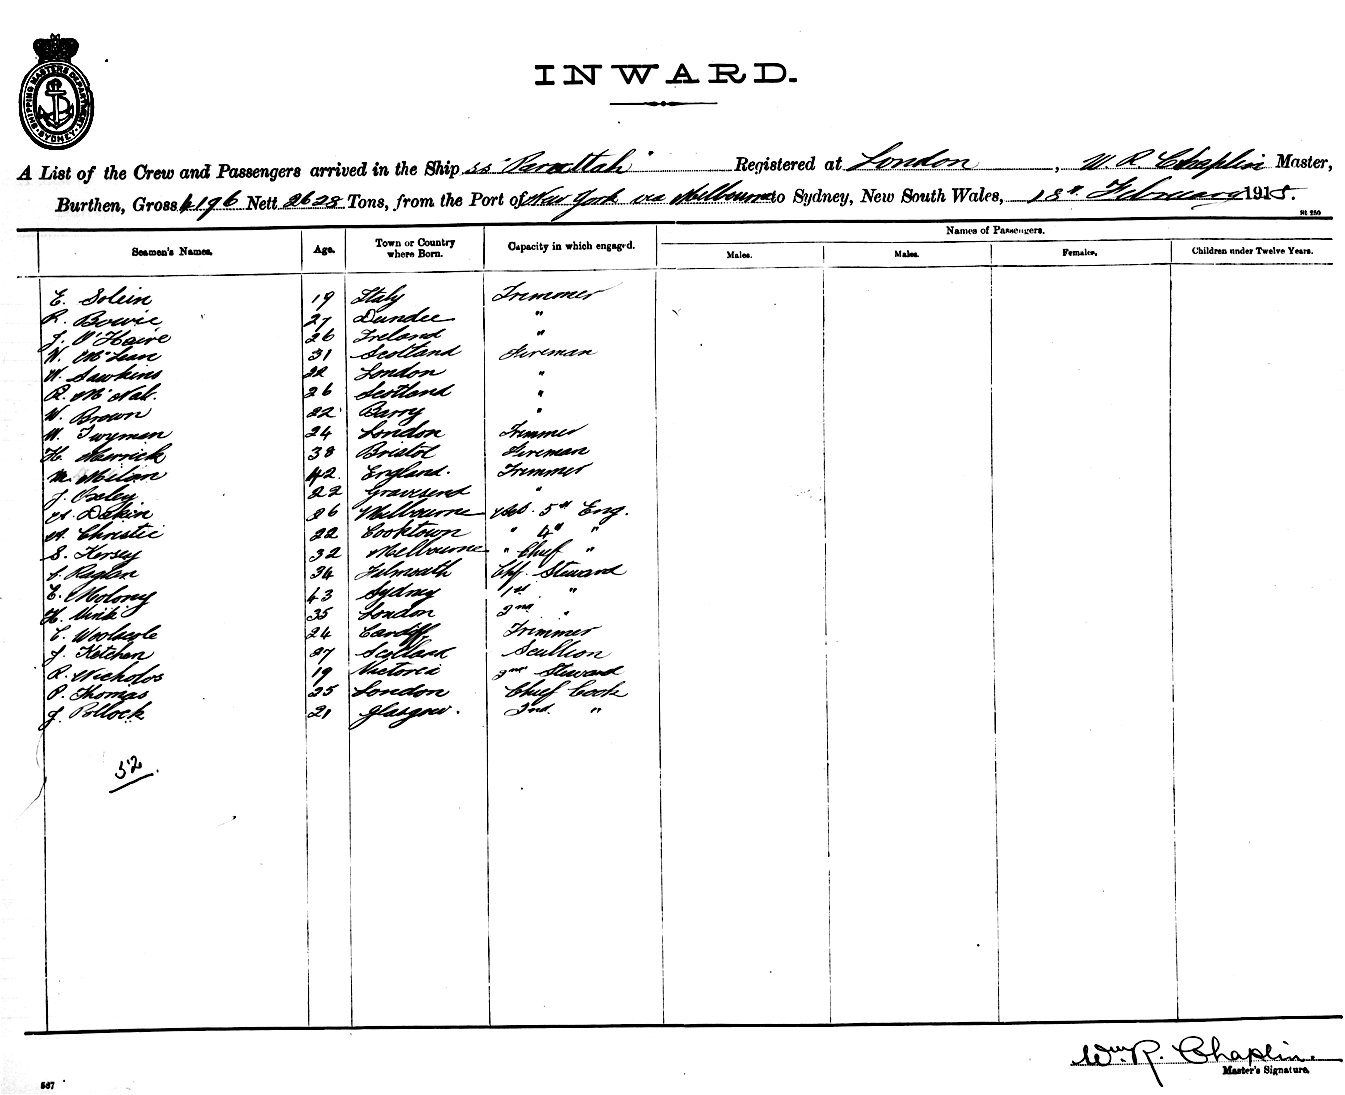 SHIPPING MASTERS DEPARTMENT SYDNEY
INWARD.
A List of the Crew and Passengers arrived in the Ship ss "Parattah" Registered at London, W. R. Chaplin Master,
Burthen, Gross 4196 Nett 2628 Tons, from the Port of New York via Melbourne to Sydney, New South Wales, 18th February 1915.
Seamen's Names. Age. Town or Country where Born. Capacity in which engaged. Names of Passengers.
Males. Males. Females. Children under Twelve Years.
E. Solein 19 Italy Trimmer
R. Bowie 27 Dundee "
J. O'Haire 26 Ireland "
W. McLean 31 Scotland Fireman
W. Sawkins 22 London "
R. McNab. 26 Scotland "
W. Brown 22 Barry "
W. Twyman 24 London Trimmer
H. Merrick 38 Bristol Fireman
M. Milan 42 England. Trimmer
J. Oxley 22 Gravesend "
A. Dakin 26 Melbourne 5th Eng.
A. Christie 22 Cooktown " 4th "
S. Kersey 32 Melbourne " Chief "
Raglan 34 Falmouth Chf. Steward
C. Molony 43 Sydney 1st "
H. Vink 35 London 2nd "
C. 24 Cardiff Trimmer
J. Ketchen 27 Scotland Scullion
R. Nicholos 19 Victoria 2nd Steward
P. Thomas 25 London Chief Cook
J. Pollock 21 Glasgow. 2nd. "
52
Wm R. Chaplin
Master's Signature.
567